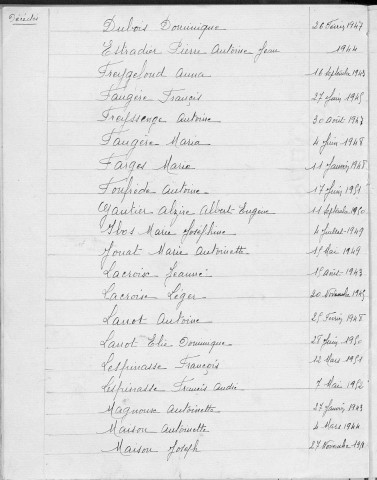 Décès
Dubois Dominique 26 Février 1947
Estradier Pierre Antoine Jean 1944
Freygefond Anna 16 Septembre 1943
Faugère Francis 27 Juin 1945
Freyssenge Antoine 30 Août 1947
Faugère Maria 4 Juin 1948
Farges Maria 11 Janvier 1948
Fonfrède Antoine 17 Juin 1951
Gautier Alzire Albert Eugène 11 Septembre 1950
Ibos Marie Joséphine 4 Juillet 1949
Jouat Marie Antoinette 15 Mai 1949
Lacroix Jeanne 15 Août 1943
Lacroix Léger 20 Novembre 1945
Lanot Antoine 25 Février 1948
Lanot Elie Dominique 28 Juin 1950
Lespinasse François 12 Mars 1951
Lespinasse Francis André 7 Mai 1952
Magnoux Antoinette 27 Janvier 1943
Maison Antoinette 4 Mars 1944
Maison Joseph 27 Novembre